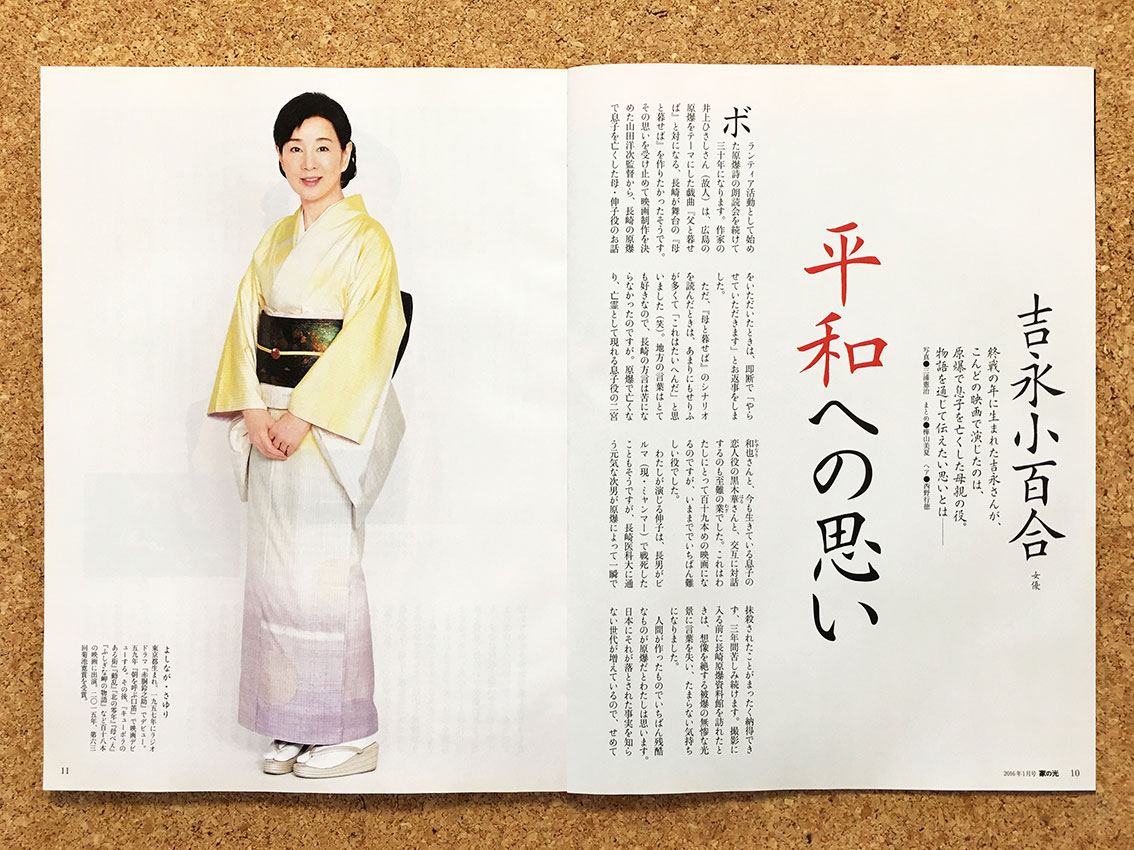 吉永小百合
女優
終戦の年に生まれた吉永さんが、
こんどの映画で演じたのは、
原爆で息子を亡くした母親の役。
物語を通じて伝えたい思いとは――
写真●三浦憲治 まとめ●樺山美夏 ヘア●西野行徳
平和への思い
ボランティア活動として始め
た原爆詩の朗読会を続けて
三十年になります。作家の
井上ひさしさん(故人)は、広島の
原爆をテーマにした戯曲『父と暮せ
ば』と対になる、長崎が舞台の『母
と暮せば』を作りたかったそうです。
その思いを受け止めて映画制作を決
めた山田洋次監督から、長崎の原爆
で息子を亡くした母・伸子役のお話
をいただいたときは、即断で「やら
せていただきます」とお返事をしま
した。
ただ、『母と暮せば』のシナリオ
を読んだときは、あまりにもせりふ
が多くて「これはたいへんだ」と思
いました(笑)。地方の言葉はとて
も好きなので、長崎の方言は苦にな
らなかったのですが。原爆で亡くな
り、亡霊として現れる息子役の二宮
和也さんと、今も生きている息子の
恋人役の黒木華さんと、交互に対話
するのも至難の業でした。これはわ
たしにとって百十九本めの映画にな
るのですが、いままででいちばん難
しい役でした。
わたしが演じる伸子は、長男がビ
ルマ(現・ミャンマー)で戦死した
こともそうですが、長崎医科大に通
う元気な次男が原爆によって一瞬で
抹殺されたことがまったく納得でき
ず、三年間苦しみ続けます。撮影に
入る前に長崎原爆資料館を訪れたと
きは、想像を絶する被爆の無惨な光
景に言葉を失い、たまらない気持ち
になりました。
人間が作ったものでいちばん残酷
なものが原爆だとわたしは思います。
日本にそれが落とされた事実を知ら
ない世代が増えているので、せめて
2016年1月号 家の光 10
よしなが・さゆり
東京都生まれ。一九五七年にラジオ
ドラマ『赤胴鈴之助』でデビュー。
五九年『朝を呼ぶ口笛』で映画デビ
ューする。その後、『キューポラの
ある街』『動乱』『北の零年』『母べえ』
『ふしぎな岬の物語』など百十八本
の映画に出演。二〇一五年、第六三
回菊池寛賞を受賞。
11